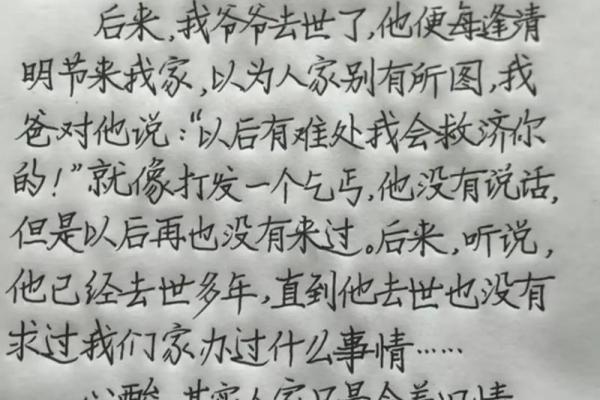 后来,我爷爷去世了,他便每逢清
明节来我家,以为人家别有所图,我
爸对他说:“以后有难处我会救济你
的!”就像打发一个乞丐,他没有说话,
但是以后再也没有来过。后来,听说,
他已经去世多年,直到他去世也没有
求过我们家办过什么事情……
心酸,其实人家只是念着旧情